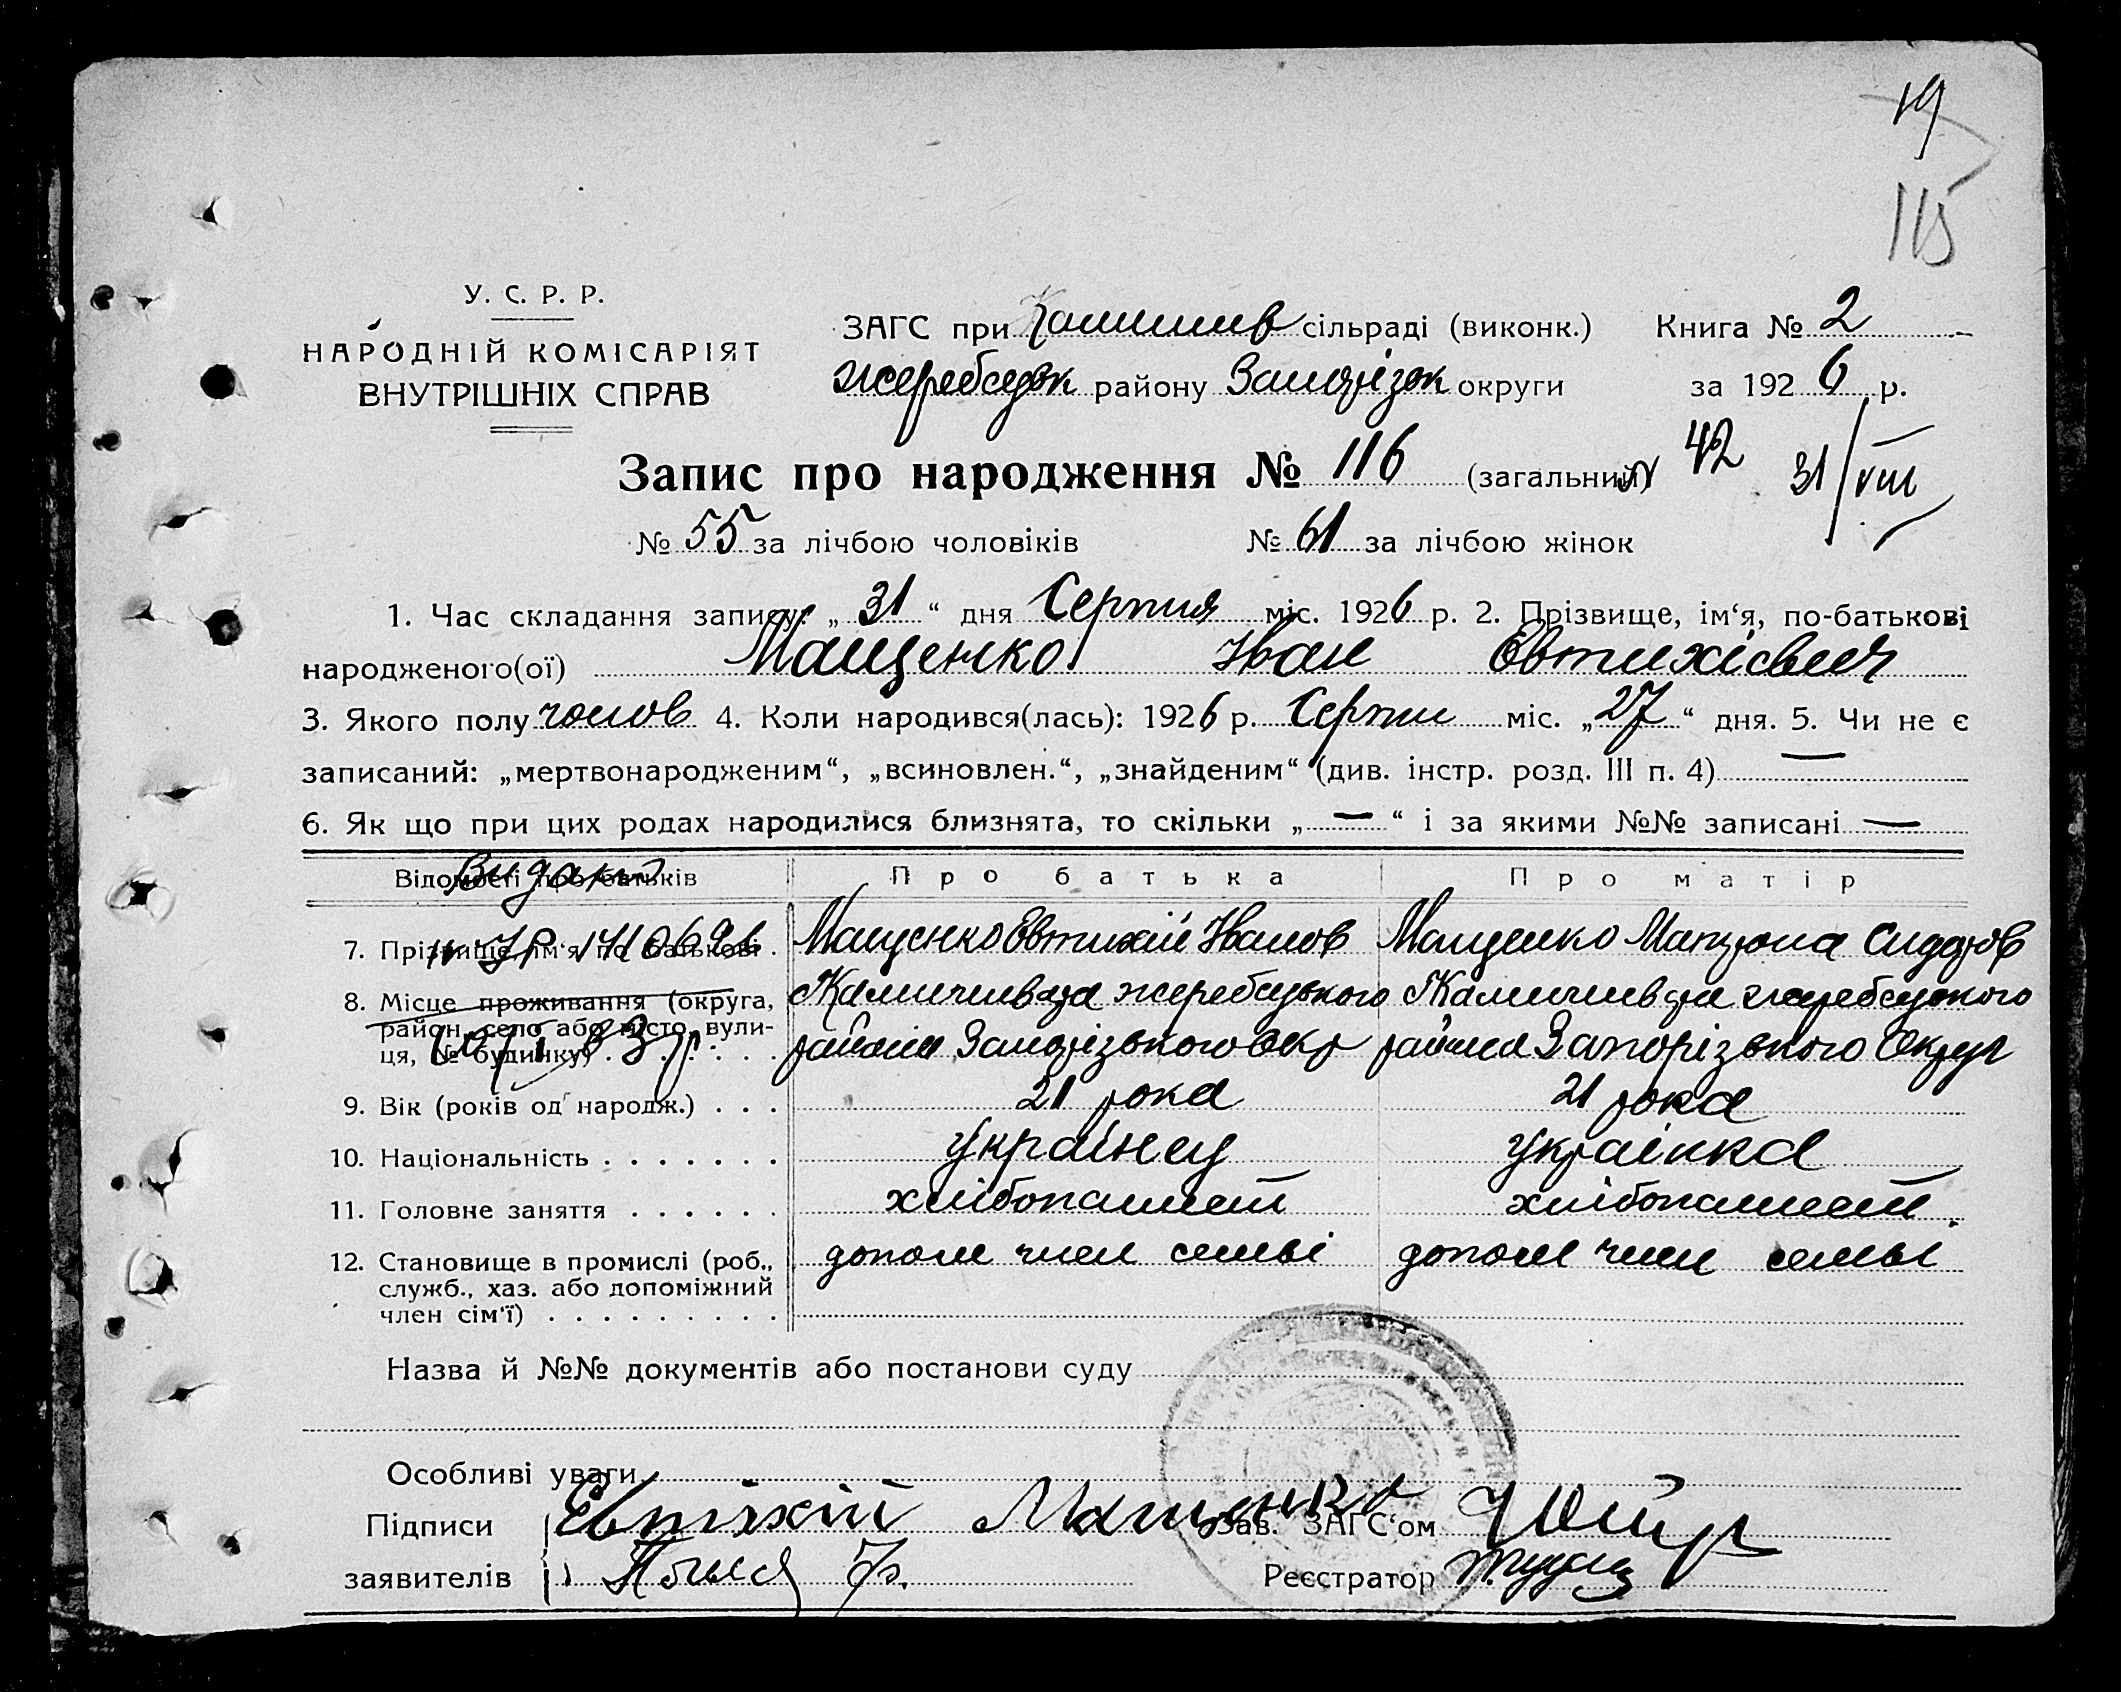 19
115
У. С. Р. Р.
НАРОДНІЙ КОМІСАРІЯТ
ВНУТРІШНІХ СПРАВ
ЗАГС при сільраді (виконк.) Книга № 2
жеребецьк району Запорізьк округи за 1926 р.
Запис про народження № 116 (загальний) 42 31/VIII
№ 55 за лічбою чоловіків № 61 за лічбою жінок
1. Час складання запису: „31“ дня Серпня міс. 1926 р. 2. Прізвище, ім‘я, по-батькові
народженого(ої) Мащенко Іван Євтихієвич
3. Якого полу чолов 4. Коли народився(лась): 1926 р. Серпн міс. „27“ дня. 5. Чи не є
записаний: „мертвонародженим“, „всиновлен.“, „знайденим“ (див. інстр. розд. III п. 4) —
6. Як що при цих родах народилися близнята, то скільки „—“ і за якими №№ записані —
Відомості про батьків Про батька Про матір
Видано
7. Прізвище ім‘я по батькові . Мащенко Євтихій Іванов Мащенко Мотрона Сидоров
8. Місце проживання (округа, район, село або місто, вули-
ця, № будинку) жеребецького жеребецького
района Запорізького Окр района Запорізького Округи
9. Вік (років од народж.) . . . 21 рока 21 рока
10. Національність . . . . . . . українец українка
11. Головне заняття . . . . . . хлібопашест хлібопашест
12. Становище в промислі (роб., служб., хаз. або допоміжний
член сім‘ї) . . . . . . . . . допом член семьі допом член семьі
Назва й №№ документів або постанови суду
Особливі уваги
Підписи Євтіхій Мащенко Зав. ЗАГС‘ом
заявителів Реєстратор